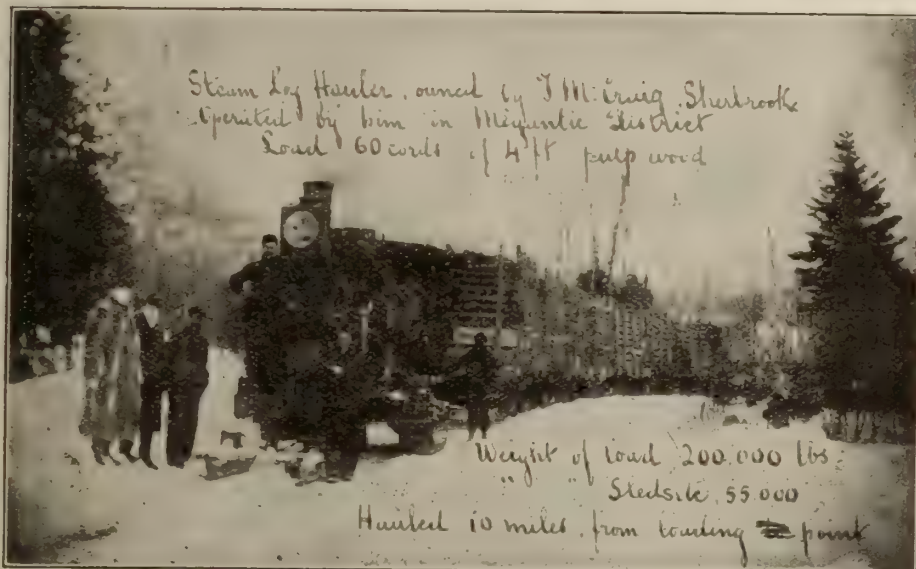 Steam Log Hauler, owned by J M. Craig, Sherbrook
Operated by him in Megantic District
Load 60 cords of 4 ft pulp wood
Weight of load 200.000 lbs.
" " 55.000
Hauled 10 miles, from loading point